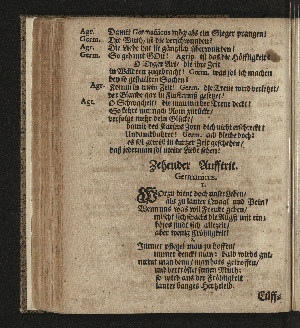 Agr. Damit Germanicus mög als ein Sieger prangen!
Germ. Der Muth, ist die verschwunden?
Agr. Die Liebe hat sie gänzlich überwunden!
Germ. So geh mit GOtt! Agrip. ist das die Höffligkeit?
O Tyger Art, die ihre Zeit
in Wäldern zugebracht! Germ. was sol ich machen
bey so gestalten Sachen?
Agr. Komm in mein Zelt! Germ. die Treue wird verletzet/
der Glaube gar in Finsternüs gesetzet/
Agr. O Schwachheit! die man mit der Treu deckt!
So kehre nur nach Rom zurücke/
verfolge mehr dein Glücke/
damit des Kaysers Zorn dich nicht erschreckt!
Undanckbahrer! Germ. ach bleibe doch:
es sol gewiß in kurtzer Zeit geschehen/
daß iederman sol meine Liebe sehen!
Zehender Aufftrit.
Germanicus.
1.
WOrzu dient doch unser Leben/
als zu lauter Quaal und Pein?
Wenn uns was wil Freude geben/
mischt sich stracks die Angst mit ein;
böses findt sich allezeit/
aber wenig Fröhligkeit!
2.
Immer pfleget man zu hoffen/
immer denckt man: bald wirds gut,
meint man denn/ man habs getroffen/
und vertröstet seinen Muth;
so wird aus der Fröhligkeit
lauter banges Hertzeleid.
Eilff-